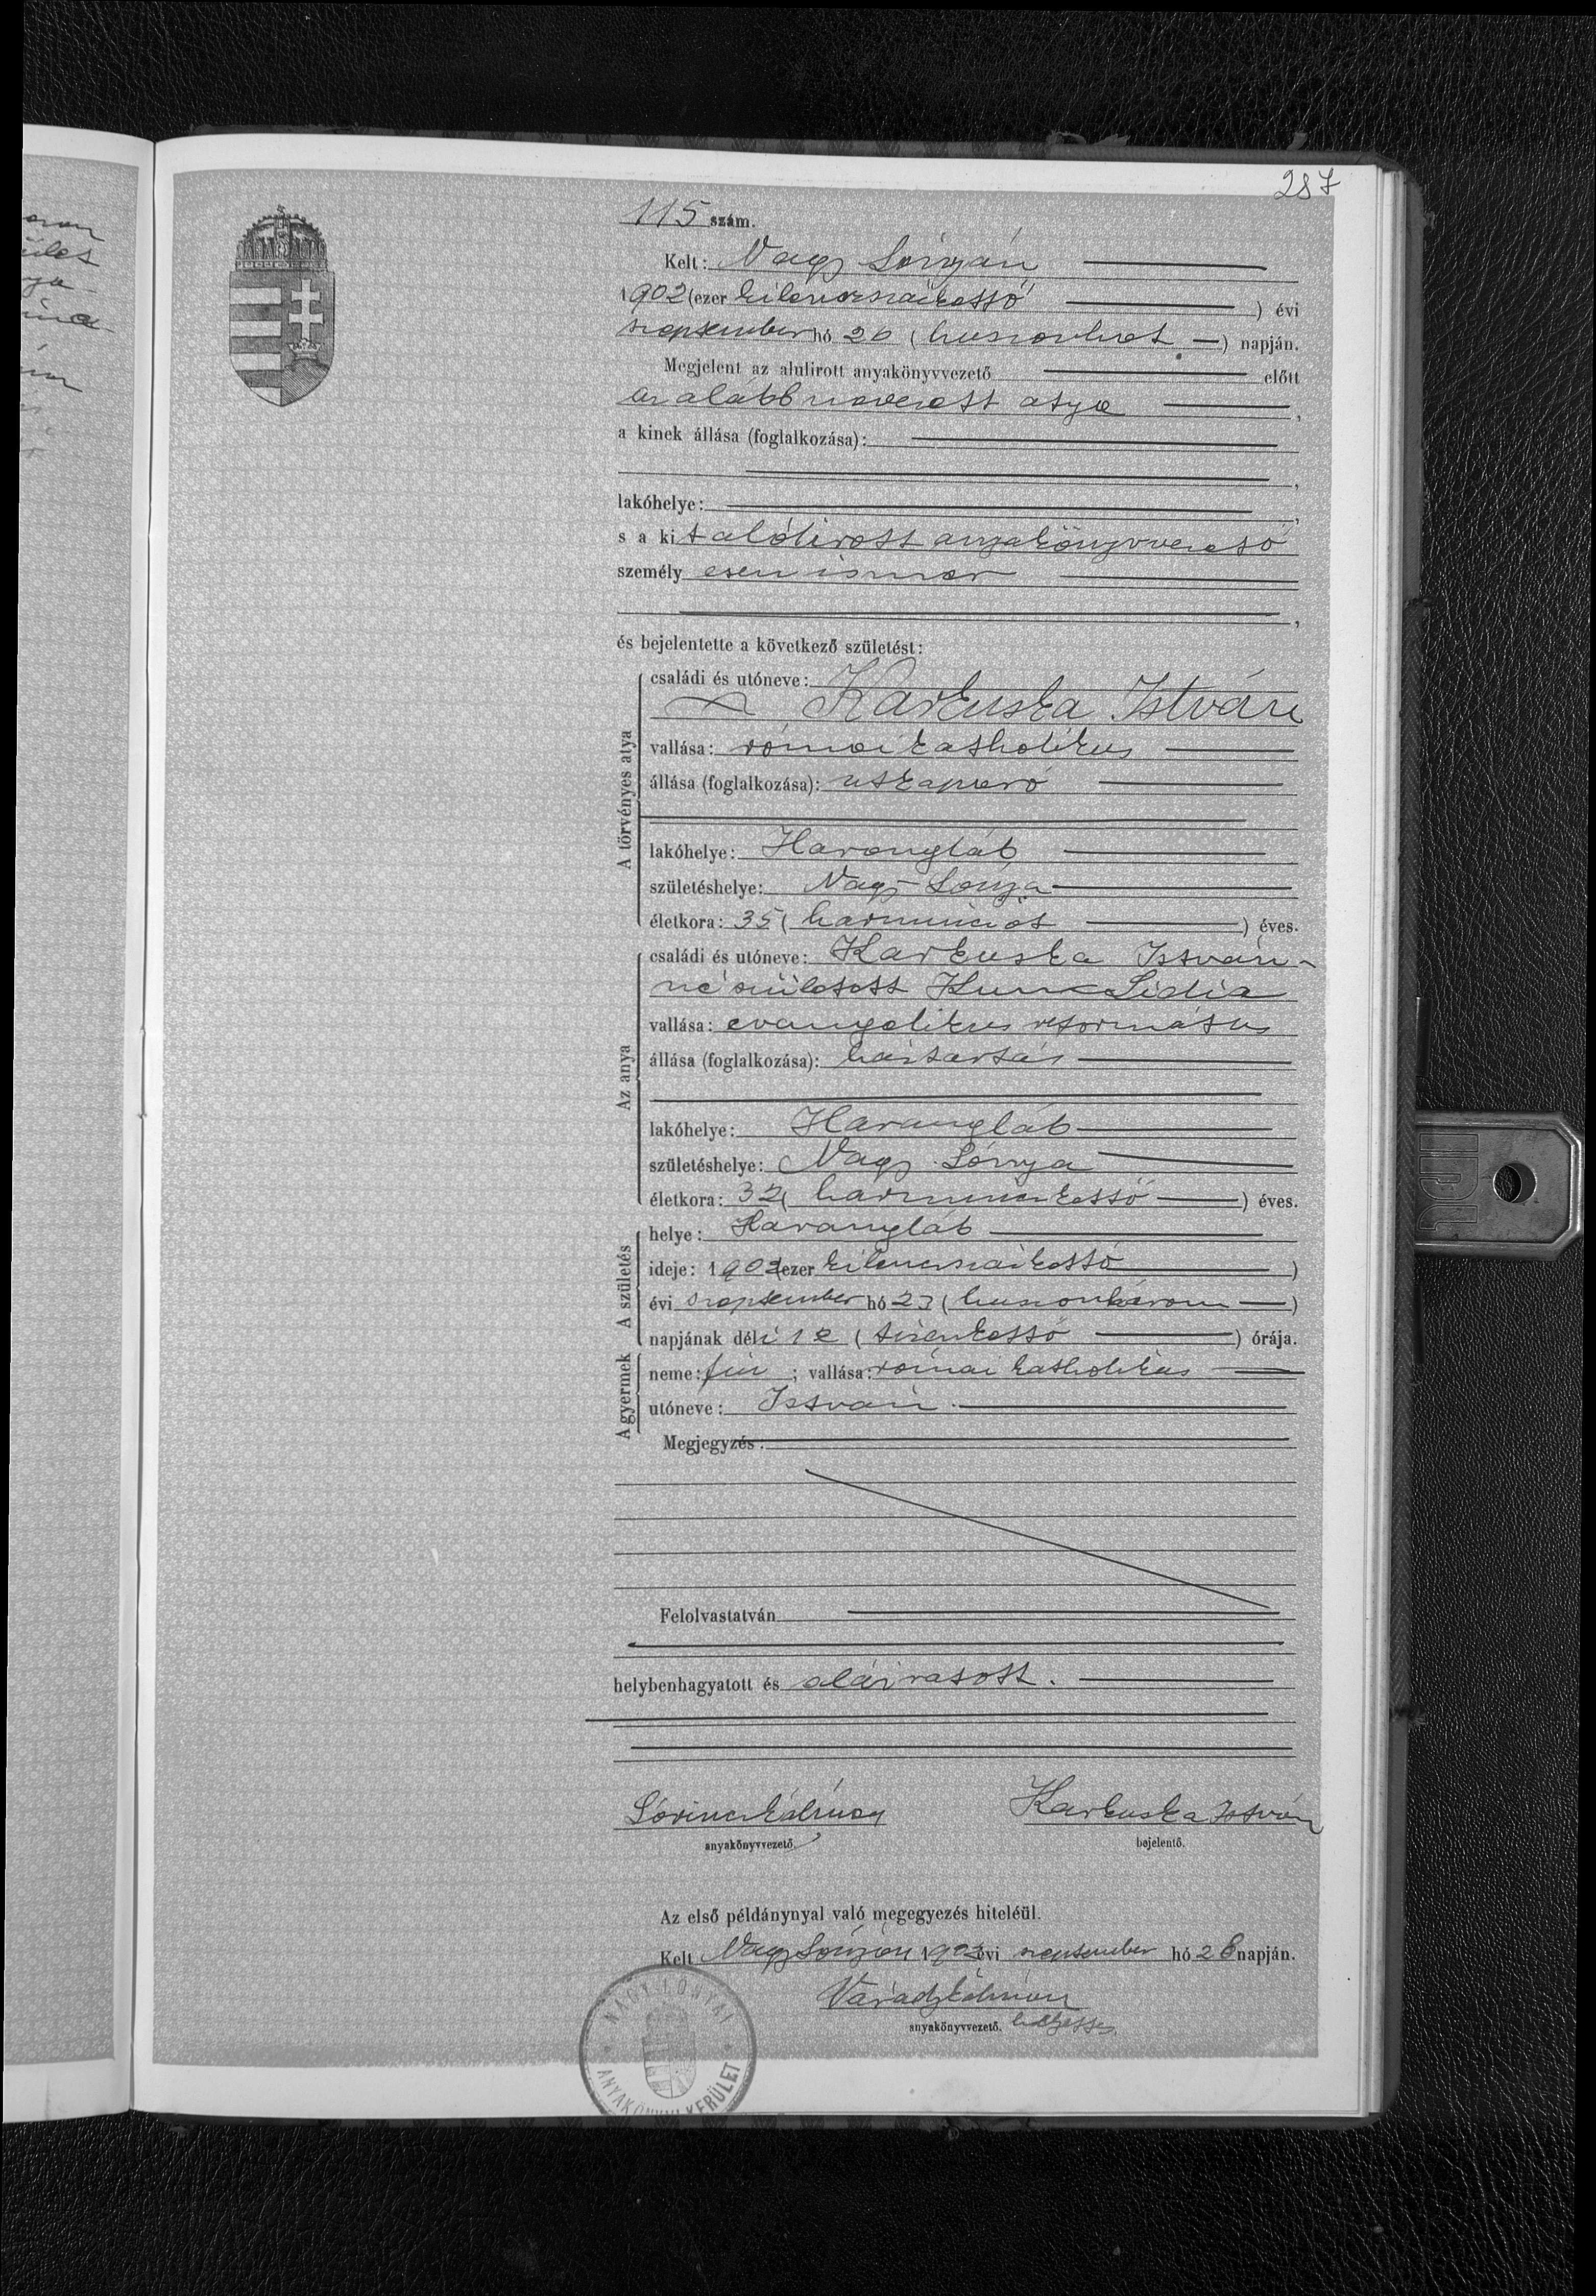 287
115 szám.
Kelt: Nagy Lónyán
1902 (ezer kilenczszázkettő ) évi
szeptember hó 26 ( huszonhat ) napján.
Megjelent az alulirott anyakönyvvezető előtt
az alább nevezett atya ,
a kinek állása (foglalkozása):
,
lakóhelye: ,
s a kit alólirott anyakönyvvezető
személy esen ismer
,
és bejelentette a következő születést:
A törvényes atya
családi és utóneve:
Karkuska István
vallása: római katholikus
állása (foglalkozása): utkaparó
lakóhelye: Harangláb
születéshelye: Nagy-Lónya
életkora: 35 ( harminczöt ) éves.
Az anya
családi és utóneve: Karkuska István-
né született Kun Lidia
vallása: evangelikus református
állása (foglalkozása): háztartás
lakóhelye: Harangláb
születéshelye: Nagy Lónya
életkora: 32 ( harminczkettő ) éves.
A születés
helye: Harangláb
ideje: 1902 (ezer kilenczszázkettő )
évi szeptember hó 23 ( huszonhárom )
napjának déli 12 ( tizenkettő ) órája.
A gyermek
neme: fiú ; vallása: római katholikus
utóneve: István
Megjegyzés:
Felolvastatván
helybenhagyatott és aláiratott.
Lőrincz Kálmán Karkuska István
anyakönyvvezető. bejelentő.
Az első példánynyal való megegyezés hiteléül.
Kelt Nagy Lónyán 1902 évi szeptember hó 28 napján.
Várady Kálmán
anyakönyvvezető. helyettes
NAGY LÓNYAI
ANYAKÖNYVI KERÜLET